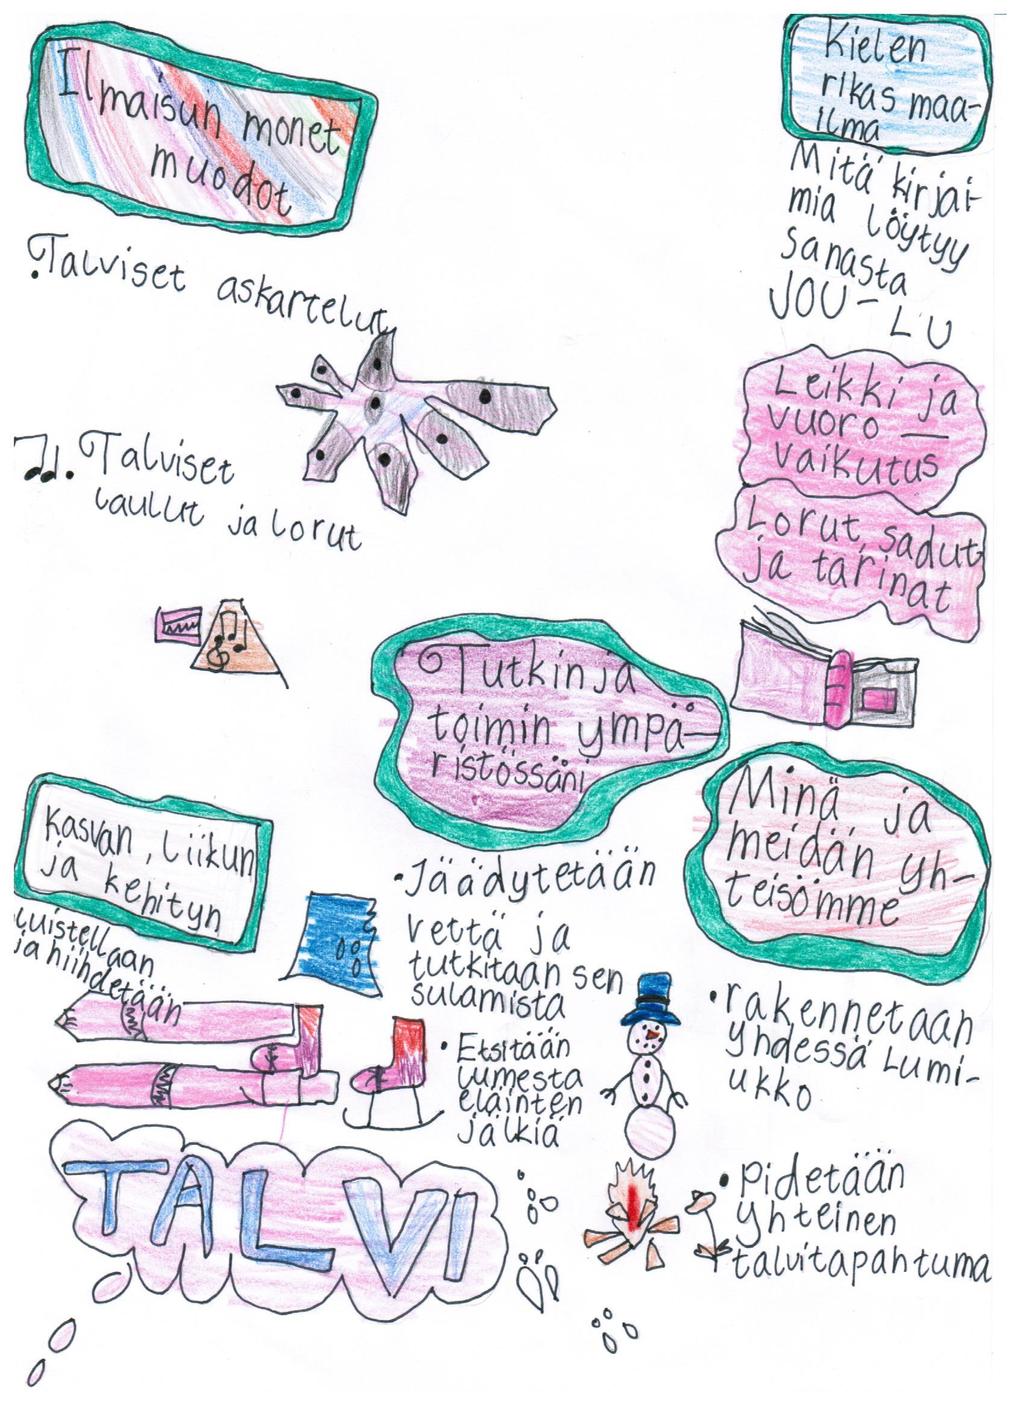 Ilmaisun monet
muodot
• Talviset askartelut
• Talviset
laulut ja lorut
Kielen
rikas maa-
ilma
Mitä kirjai-
mia löytyy
sanasta
JOU-
LU
Leikki ja
vuoro-
vaikutus
Lorut, sadut
ja tarinat
Tutkin ja
toimin ympä-
ristössäni
• Jäädytetään
vettä ja
tutkitaan sen
sulamista
• Etsitään
lumesta
eläinten
jälkiä
Minä ja
meidän yh-
teisömme
• rakennetaan
yhdessä lumi-
ukko
• Pidetään
yhteinen
talvitapahtuma
Kasvan, liikun
ja kehityn
luistellaan
ja hiihdetään
TALVI